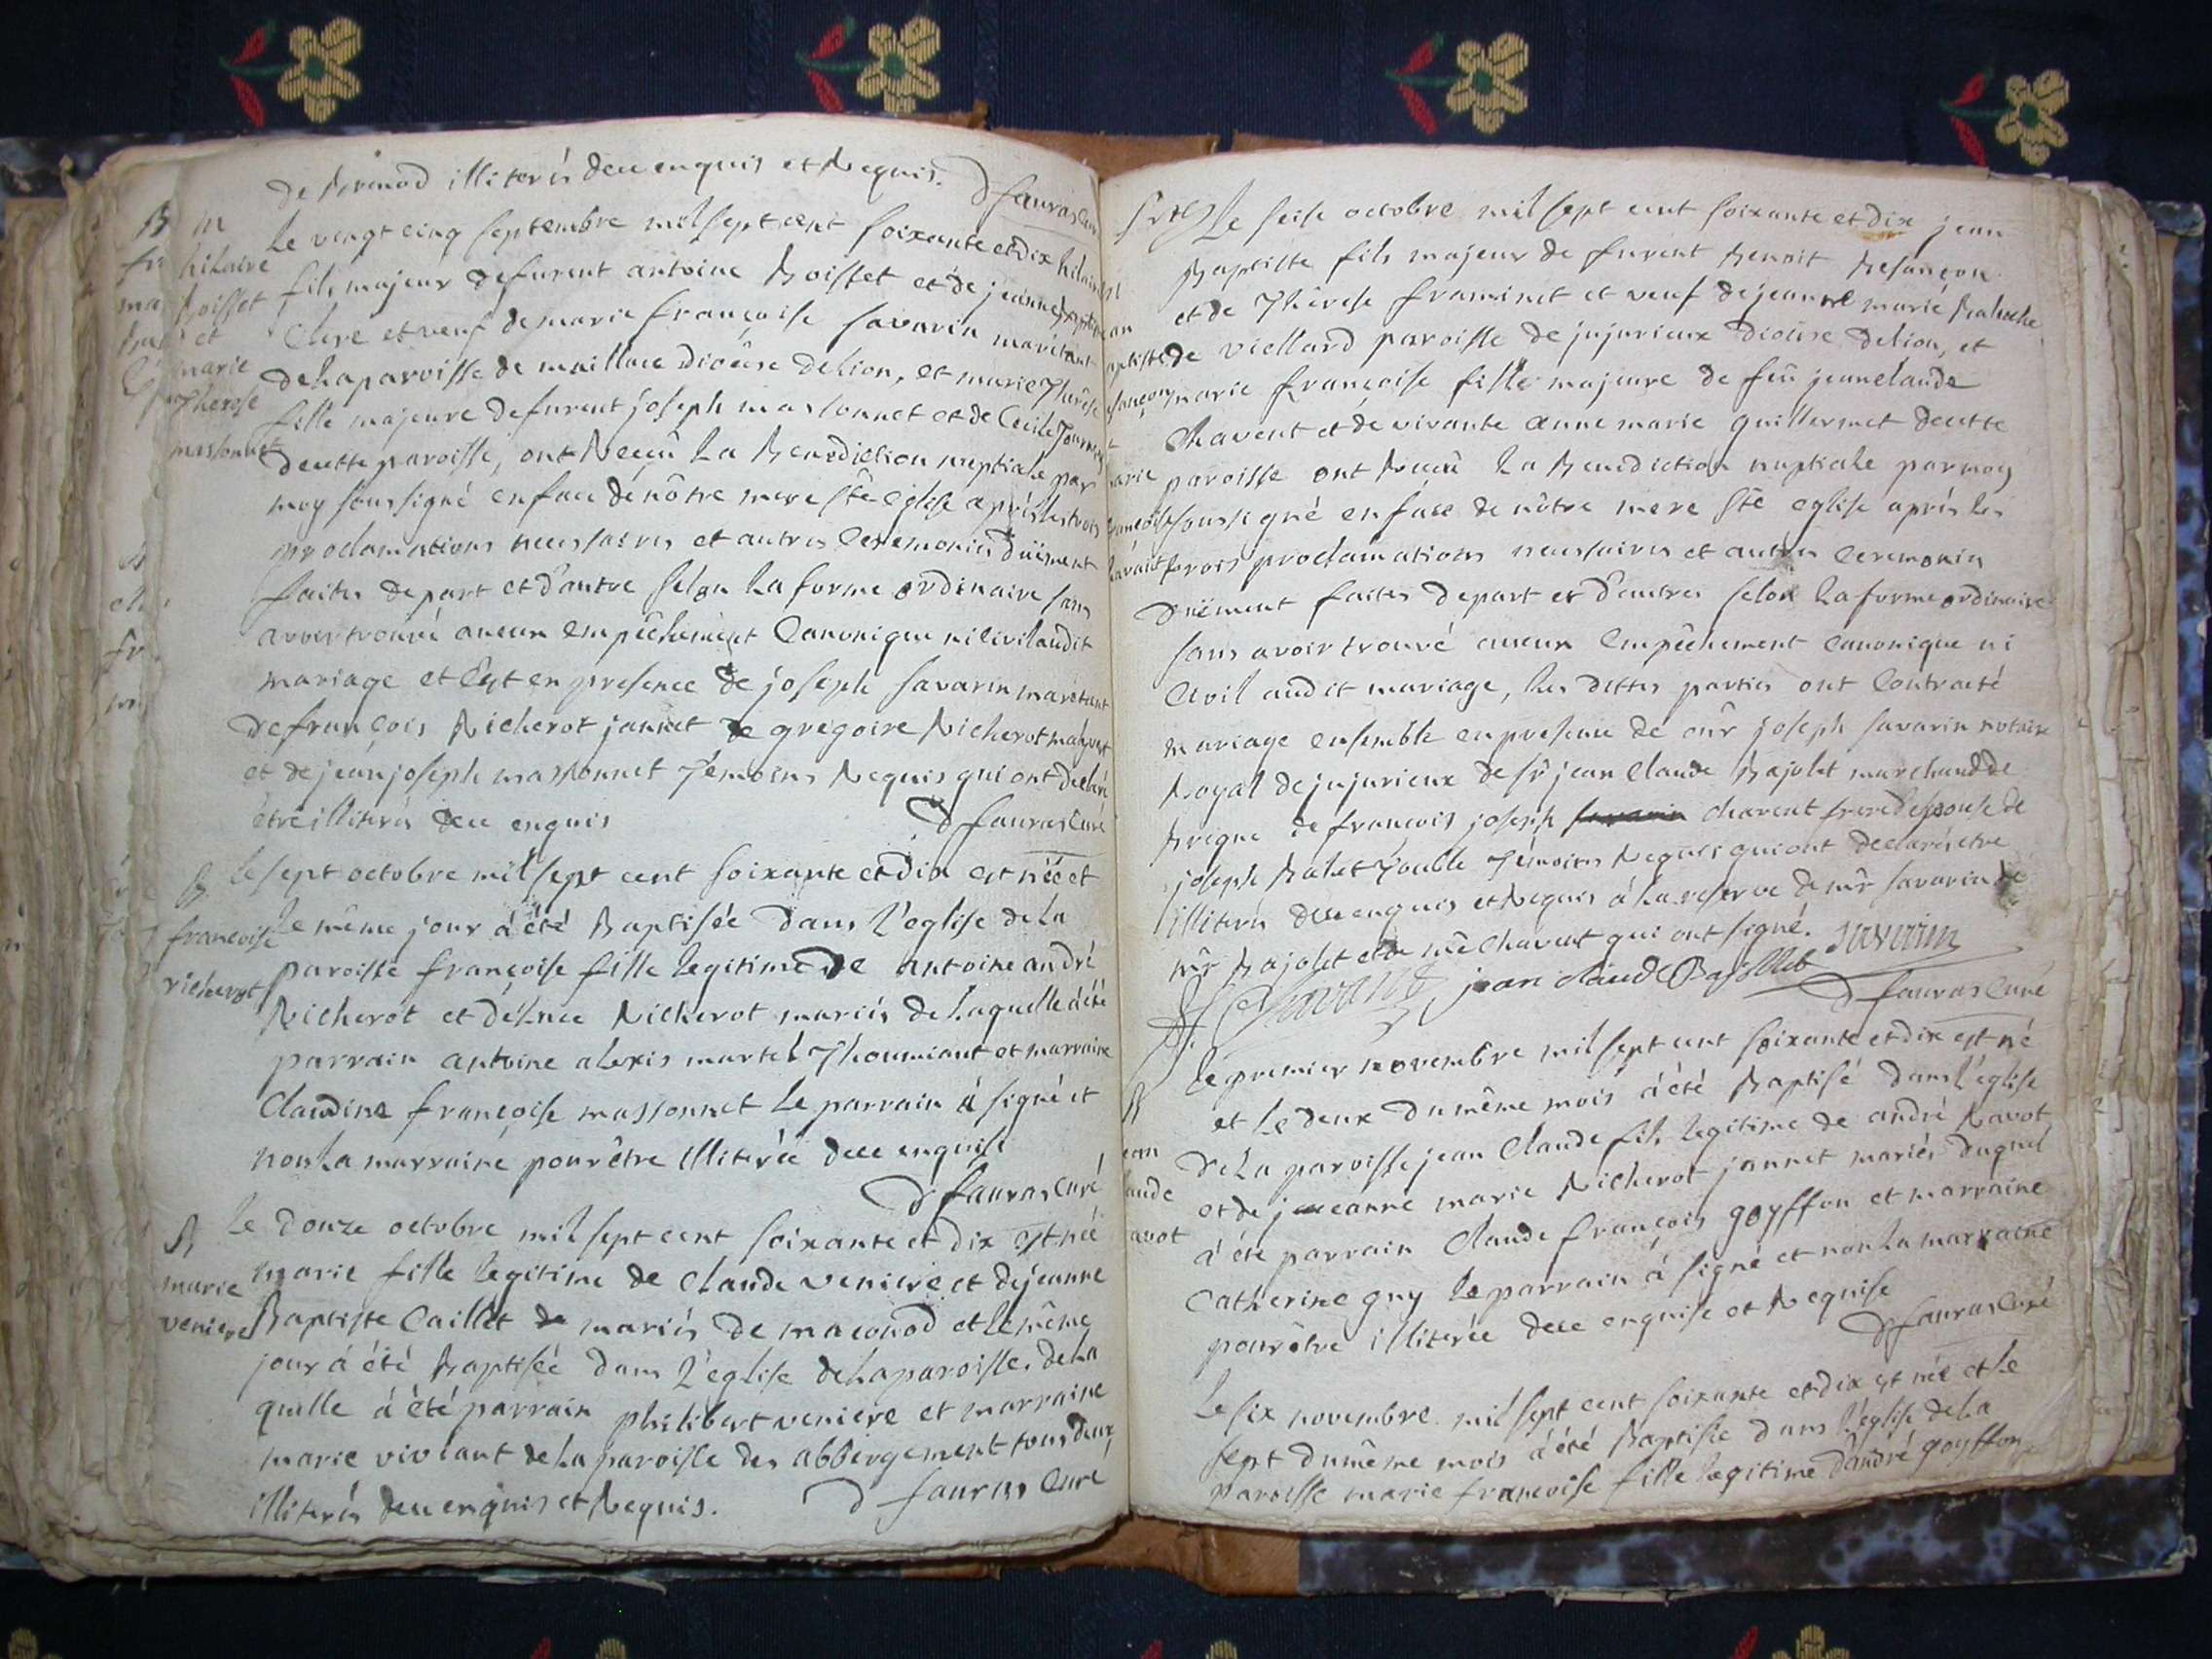 de illiterés dece enquis et Requis.
D fauras Curé
B M
hilaire
Boisset
et
marie
Therese
massonnet
le vengt cinq septembre mil sept cent soixante et dix hilaire
fils majeur de furent antoine Boisset et de jeanne Baptiste
Clerc et veuf de marie françoise savarin maretant
de la paroisse de maillac Dioëse de lion, et marie Therese
fille majeure de furent joseph massonnet et de Cecile
de cette paroisse, ont Receü la Benediction nuptiale par
moy soussigné en face dé nôtre mere ste eglise aprés les trois
proclamations necessaires et autres Ceremonies düement
faites de part et d'autre selon la forme ordinaire sans
avoir trouvé aucun empêchement Canonique ni Civil audit
mariage et C'est en presence de joseph savarin maretant
de françois Richerot jannet de gregoire Richerot
et de jean joseph massonnet Témoins Requis qui ont declaré
être illiterés dece enquis
D fauras Curé
B
francoise
richerot
le sept octobre mil sept cent soixante et dix est néé et
le même jour á été Baptisée dans l'eglise de la
paroisse françoise fille legitime de antoine andré
Richerot et de Richerot mariés de laquelle á été
parrain antoine alexis martel Thoumiant et marraine
Claudine françoise massonnet le parrain á signé et
non la marraine pour être illiterée dece enquise
D fauras Curé
B
marie
veniere
le douze octobre mil sept cent soixante et dix est née
marie fille legitime de Claude veniere et de jeanne
Baptiste Caillet de mariés de maconod et le même
jour á été Baptisée dans l'eglise de la paroisse. de la
quelle á été parrain philibert veniere et marraine
marie viviant de la paroisse des abbergement tous deux
illiterés dece enquis et Requis.
D fauras Curé
le seise octobre mil sept cent soixante et dix jean
Baptiste fils majeur de furent Benoit Besançon
et de Thérese framinet et veuf de jeanne marie
de viellard paroisse de jujurieux dioëse de lion, et
marie françoise fille majeure de feü jean claude
Chavent et de vivante anne marie guillermet de cette
paroisse ont Receü la Benediction nuptiale par moy
soussigné en face de nôtre mere ste eglise aprés les
trois proclamations necessaires et autres Ceremonies
düement faites de part et d'autres selon la forme ordinaire
sans avoir trouvé aucun empêchement Canonique ni
Civil audit mariage, les dittes parties ont Contracté
mariage ensemble en presence de joseph savarin notaire
Royal de jujurieux de sr jean Claude Bajolet marchand de
de françois joseph chavent frere d'espouse de
joseph Balet Témoins Requis qui ont declarés etre
illiterés dece enquis et Requis á la reserve de mr savarin de
mr Bajolet et de me Chavent qui ont signé.
savarin
Chavant
jean claude Bajollet
D fauras Curé
B
ean
aude
avot
le premier novembre mil sept cent soixante et dix est né
et le deux du même mois á été Baptisé dans l'eglise
de la paroisse jean Claude fils legitime de andré Ravot
et de jeanne marie Richerot jannet mariés duquel
á été parrain Claude françois goyffon et marraine
Catherine guy le parrain á signé et non la marraine
pour être illiterée dece enquise et Requise
D fauras Curé
le six novembre mil sept cent soixante et dix est née et le
sept du même mois á été Baptisée dans l'eglise de la
paroisse marie françoise fille legitime d'andré goyffon